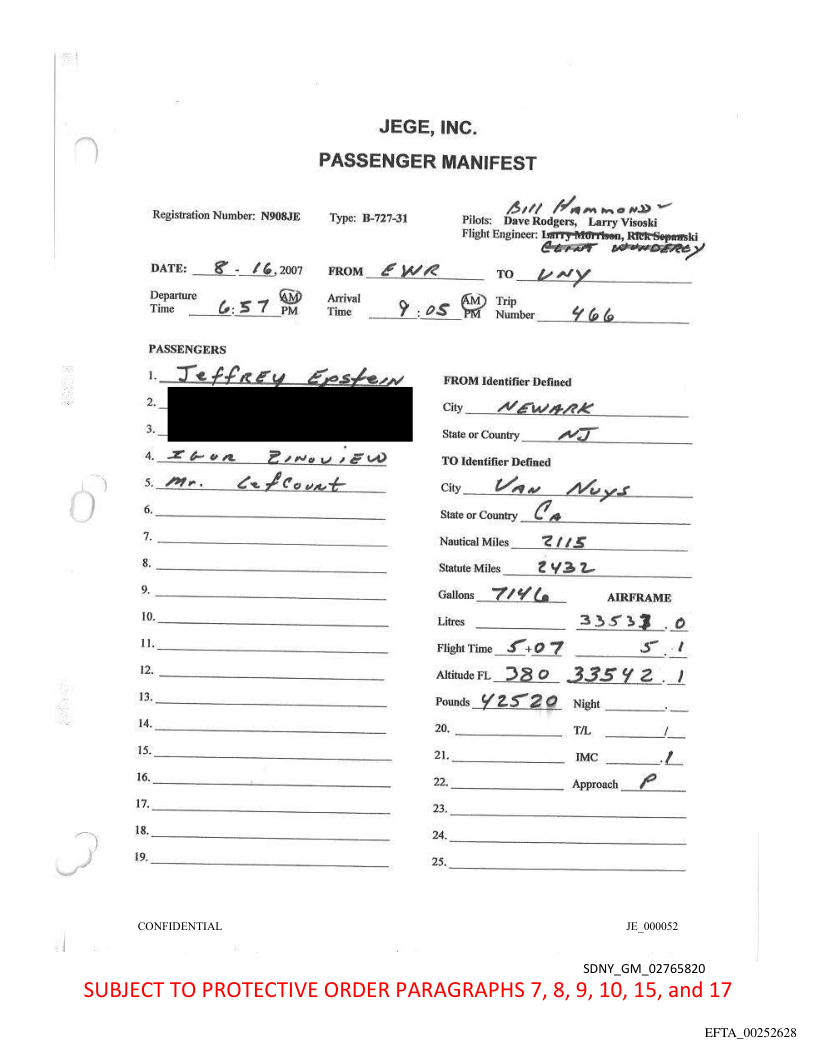 JEGE, INC.
PASSENGER MANIFEST
Bill Hammond
Registration Number: N908JE Type: B-727-31 Pilots: Dave Rodgers, Larry Visoski
Flight Engineer: Larry Morrison, Rick Sepanski
DATE: 8 - 16, 2007 FROM EWR TO VNY
Departure Time 6:57 AM PM Arrival Time 9:05 AM PM Trip Number 466
PASSENGERS
1. Jeffrey Epstein
2.
3.
4. IGOR ZINOVIEW
5. Mr. LefCount
6.
7.
8.
9.
10.
11.
12.
13.
14.
15.
16.
17.
18.
19.
FROM Identifier Defined
City NEWARK
State or Country NJ
TO Identifier Defined
City VAN NUYS
State or Country CA
Nautical Miles 2115
Statute Miles 2432
Gallons 7146 AIRFRAME
Litres 33537.0
Flight Time 5+07 5.1
Altitude FL 380 33542.1
Pounds 42520 Night .
20. T/L /
21. IMC .1
22. Approach P
23.
24.
25.
CONFIDENTIAL JE_000052
SDNY_GM_02765820
SUBJECT TO PROTECTIVE ORDER PARAGRAPHS 7, 8, 9, 10, 15, and 17
EFTA_00252628